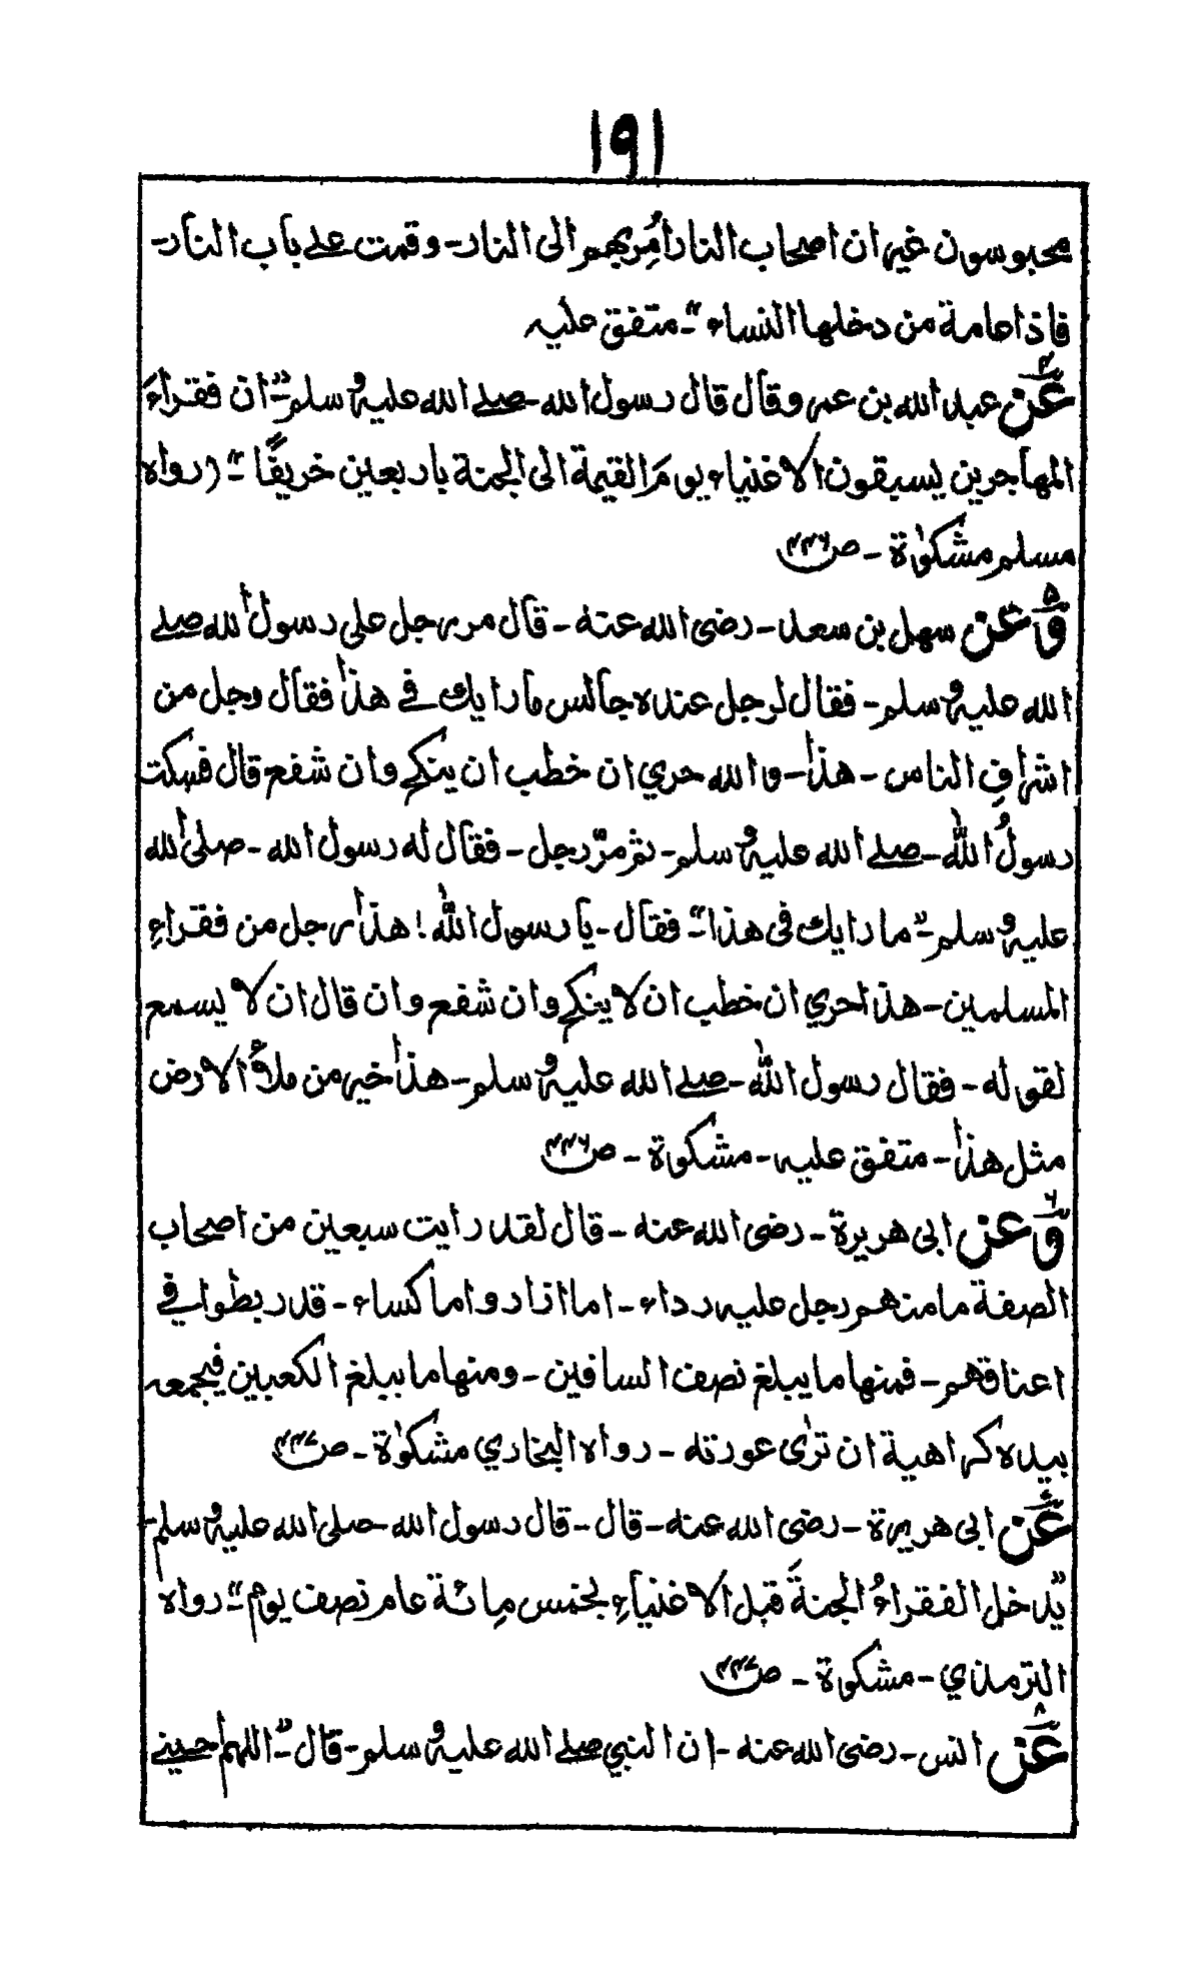 ۱۹۱
محبوسون غير ان اصحاب النار اُمِر بهم الى النار۔ وقمت علے باب النار۔
فاذا عامة من دخلها النساء"۔ متفق عليه
۴ عَن عبد الله بن عمر وقال قال رسول الله۔ صلے الله عليه وسلم۔ "ان فقراءَ
المهاجرين يسبقون الاغنياء يومَ القيٰمة الى الجنة باربعين خريفًا"۔ (رواه
مسلم مشكوٰة۔ ص۴۴۶
۵ وَعَن سهل بن سعد۔ رضى الله عنه۔ قال مر رجل على رسول الله صلے
الله عليه وسلم۔ فقال لرجل عنده جالس ما رايك فے هذا فقال رجل من
اشرافِ الناس۔ هذا۔ والله حري ان خطب ان ينكح وان شفع قال فسكت
رسولُ الله۔ صلے الله عليه وسلم۔ ثم مرّ رجل۔ فقال له رسول الله۔ صلى الله
عليه وسلم۔ "ما رايك فى هذا"۔ فقال۔ يا رسول الله! هذا رجل من فقراءِ
المسلمين۔ هذا حري ان خطب ان لا ينكح وان شفع وان قال ان لا يسمع
لقوله۔ فقال رسول الله۔ صلے الله عليه وسلم۔ هذا خير من ملأ الارض
مثل هذا۔ متفق عليه۔ مشكوة۔ ص۴۴۶
۶ وَعَن ابى هريرة۔ رضى الله عنه۔ قال لقد رايت سبعين من اصحاب
الصفة ما منهم رجل عليه رداء۔ اما ازار واما كساء۔ قد ربطوا فے
اعناقهم۔ فمنها ما يبلغ نصف السافين۔ ومنها ما يبلغ الكعبين فيجمعه
بيده كراهية ان ترٰى عورته۔ رواه البخاري مشكوٰة۔ ص۴۴۷
۷ عَن ابى هريرة۔ رضى الله عنه۔ قال۔ قال رسول الله۔ صلى الله عليه وسلم۔
"يدخل الفقراءُ الجنةَ قبل الاغنياءِ بخمس مِائة عام نصف يوم"۔ رواه
الترمذي۔ مشكوة۔ ص۴۴۷
۸ عَن انس۔ رضى الله عنه۔ ان النبي صلے الله عليه وسلم۔ قال۔ "اللهم احينے